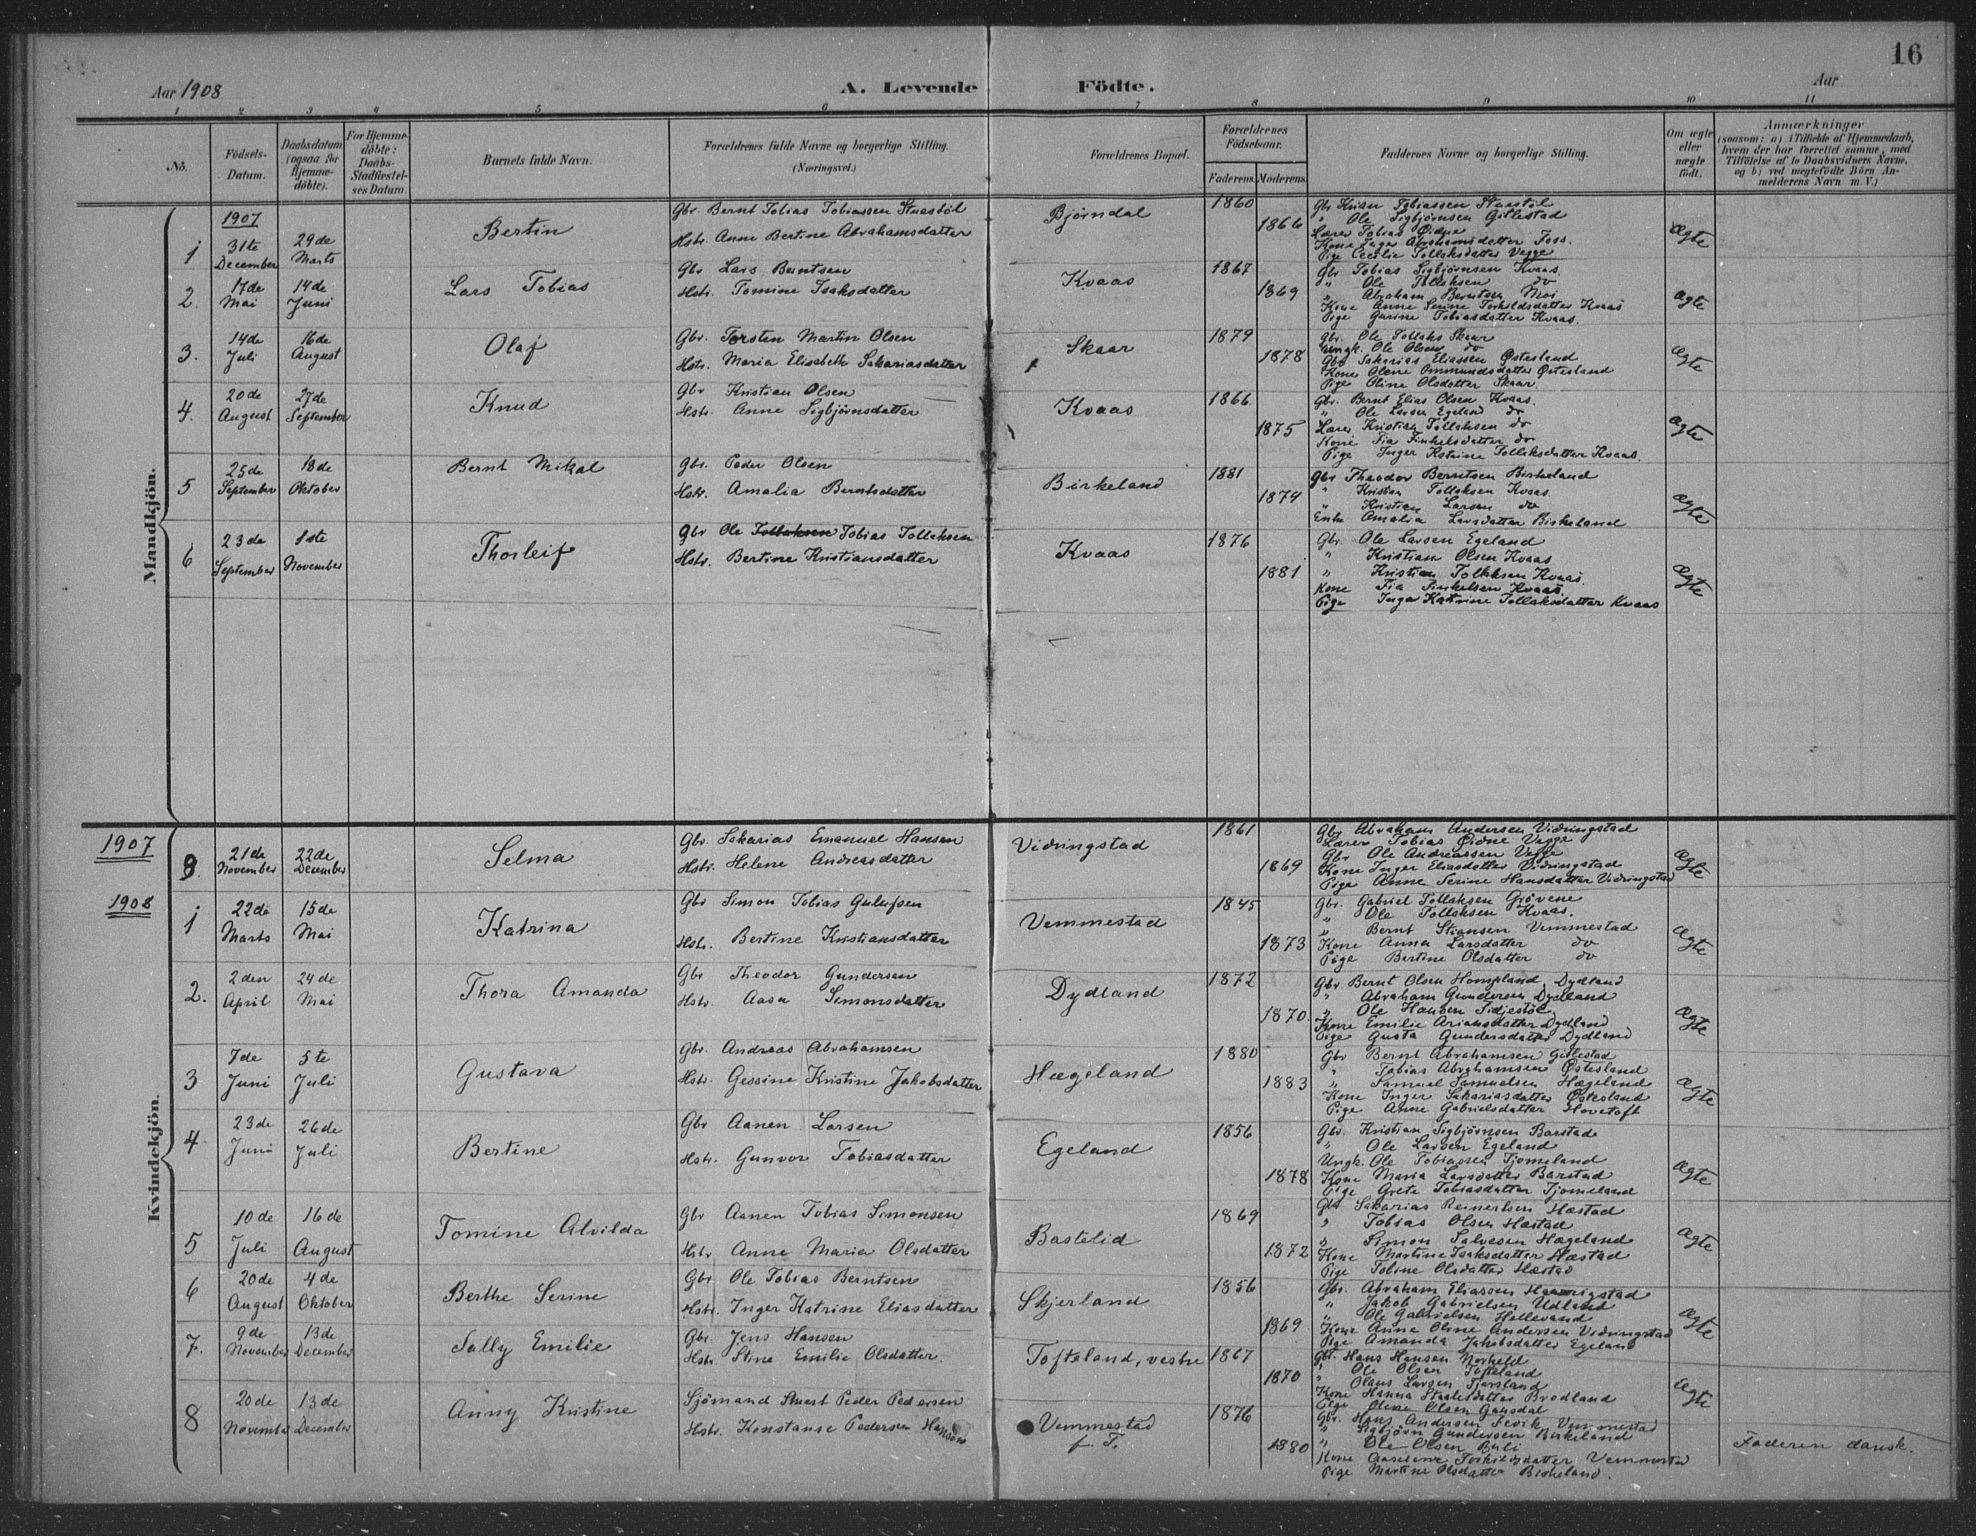 16
Aar 1908
A. Levende Födte.
Aar
1 2 3 4 5 6 7 8 9 10 11
No.
Födsels-Datum.
Daabsdatum (ogsaa for Hjemme-döbte).
For Hjemme-döbte: Daabs-Stadfæstel-ses Datum.
Barnets fulde Navn.
Forældrenes fulde Navne og borgerlige Stilling. (Næringsvei.)
Forældrenes Bopæl.
Forældrenes Födselsaar.
Faderens. Moderens.
Faddernes Navne og borgerlige Stilling.
Om ægte eller uægte födt.
Anmærkninger
(saasom: a) i Tilfælde af Hjemmedaab, hvem der har forrettet samme, med Tilföielse af to Daabsvidners Navne, og b) ved uegtefödte Börn An-melderens Navn m. V.)
Mandkjön.
1907
1 31te December 29de Marts
Bertin
Gbr. Bernt Tobias Tobiassen Stuestöl
Hstr. Anne Bertine Abrahamsdatter
Bjørndal
1860
1866
Ole Sigbjørnsen Gitlestad
Lærer Tobias Øidne
Kone Inger Abrahamsdatter Foss.
Pige Cecilie Tollaksdatter Vegge
Ægte
2. 17de Mai 14de Juni
Lars Tobias
Gbr Lars Berntsen
Hstr. Tomine Isaksdatter
Kvaas
1867
1869
Gbr Tobias Sigbjørnsen Kvaas.
" Ole Tollaksen do
" Abraham Berntsen Moi
Kone Anne Serine Torkildsdatter Kvaas
Pige Gurine Tobiasdatter Kvaas.
Ægte
3. 14de Juli 16de August
Olaf
Gbr. Torsten Martin Olsen
Hstr. Maria Elisabeth Sakariasdatter
Skaar
1879
1878
Gbr. Ole Tollaks Skaar
Ungk. Ole Olsen do
Gbr Sakarias Eliassen Østesland
Kone Olene Ommundsdatter Østesland
Pige Oline Olsdatter Skaar.
Ægte
4. 20de August 27de September
Knud
Gbr Kristian Olsen
Hstr. Anne Sigbjørnsdatter
Kvaas
1866
1875
Gbr. Bernt Elias Olsen Kvaas.
" Ole Larsen Egeland do
Lærer Kristian Tollaksen do
Kone Sia Finkelsdatter do
Pige Inger Katrine Tollaksdatter Kvaas.
Ægte
5 25de September 18de Oktober
Bernt Mikal
Gbr. Peder Olsen
Hstr. Amalia Berntsdatter
Birkeland
1881
1874
Gbr Theodor Berntsen Birkeland
" Kristian Tollaksen Kvaas
" Kristian Larsen do
Enke Amalia Larsdatter Birkeland
Ægte
6 23de September 1ste November
Thorleif
Gbr Ole Tollaksen Tobias Tollaksen
Hstr. Bertine Kristiansdatter
Kvaas
1876
1881
Gbr. Ole Larsen Egeland
" Kristian Olsen Kvaas
" Kristian Tollaksen Kvaas.
Kone Sia Finkelsen Kvaas.
Pige Inga Katrine Tollaksdatter Kvaas
Ægte
Kvindekjön.
1907
9. 21de November 22de December
Selma
Gbr. Sakarias Emanuel Hansen
Hstr. Helene Andreasdatter
Vidringstad
1861
1869
Gbr Abraham Andersen Vidringstad
Lærer Tobias Øidne Vegge
Gbr Ole Andreassen Vegge
Kone Inger Eliasdatter Vidringstad
Pige Anne Serine Hansdatter Vidringstad
Ægte
1908
1 22de Marts 15de Mai
Katrina
Gbr Simon Tobias Gulufsen
Hstr. Bertine Kristiansdatter
Vemmestad
1845
1873
Gbr. Gabriel Tollaksen Grövene
" Ole Tollaksen Kvaas.
" Bernt Stiansen Vemmestad
Kone Anna Larsdatter do
Pige Bertine Olsdatter do
Ægte
2. 2den April 24de Mai
Thora Amanda
Gbr Theodor Gundersen
Hstr. Aasa Simonsdatter
Dydland
1872
1870.
Gbr Bernt Olsen Hompland, Dydland
" Abraham Gundersen Dydland
" Ole Hansen
Kone Emilie Ariansdatter Dydland
Pige Gusta Gundersdatter Dydland
Ægte
3 7de Juni 5te Juli
Gustava
Gbr. Andreas Abrahamsen
Hstr. Gessine Kristine Jakobsdatter
Hægeland
1880
1883
Gbr Bernt Abrahamsen Gitlestad
" Tobias Abrahamsen Østesland
" Samuel Samuelsen Hægeland
Kone Inger Sakariasdatter Østesland
Pige Anne Gabrielsdatter Hovetoft
Ægte
4. 23de Juni 26de Juli
Bertine
Gbr Aanen Larsen
Hstr. Gunvor Tobiasdatter
Egeland
1856
1878
Gbr. Kristian Sigbjørnsen Barstad
" Ole Larsen Egeland
Ungk. Ole Tobiassen Tjomeland
Kone Maria Larsdatter Barstad
Pige Grete Tobiasdatter Tjomeland
Ægte
5 10de Juli 16de August
Tomine Alvilda
Gbr Aanen Tobias Simonsen
Hstr Anne Maria Olsdatter
Bastelid
1869
1872
Gbr Sakarias Reinertsen Hæstad
" Tobias Olsen Hæstad
" Simon Salvesen Hægeland
Kone Martine Isaksdatter Hæstad
Pige Tobine Olsdatter Hæstad
Ægte
6 20de August 4de Oktober
Berthe Serine
Gbr Ole Tobias Berntsen
Hstr. Inger Katrine Eliasdatter
Skjerland
1856
1869
Gbr. Abraham Eliassen
" Jakob Gabrielsen Udland
" Ole Gabrielsen Helleland
Kone Anne Oline Andersen Vidringstad
Pige Amanda Jakobsdatter Egeland
Ægte
7. 9de November 13de December
Sally Emilie
Gbr. Jens Hansen
Hstr. Stine Emilie Olsdatter.
Tofteland, vestre
1867
1870
Gbr. Hans Hansen
" Ole Olsen Tofteland
" Olaus Larsen Tjorsland
Kone Hanna Staalesdatter Brodland
Pige Olene Olsen
Ægte
8 20de November 13de December
Anny Kristine
Sjömand Stuert Peder Pedersen
Hstr. Konstanse Pedersen Hansen
Vemmestad
f. T.
1876
1880
Gbr. Hans Andersen Vemmestad
" Sigbjørn Gundersen Birkeland
" Ole Olsen Buli
Kone Aaselene Torkildsdatter Vemmestad
Pige Martine Olsdatter Birkeland.
Faderen dansk.